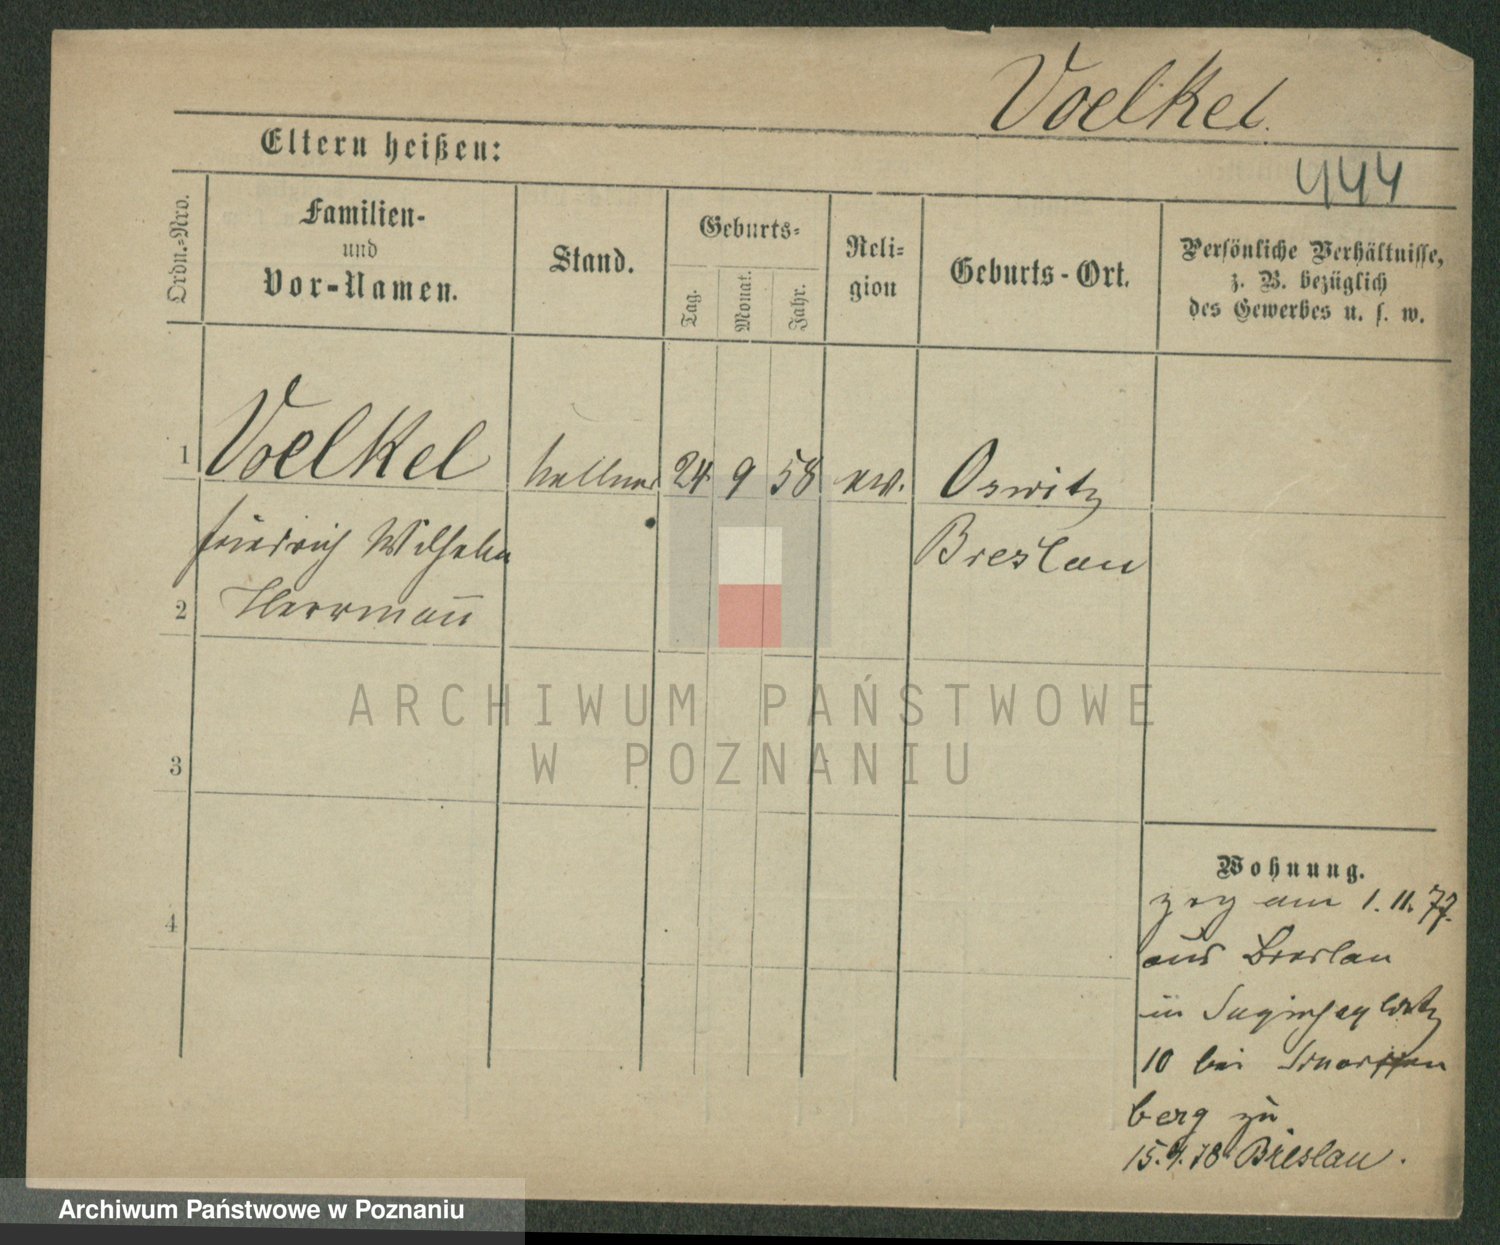 Voelkel.
Eltern heißen:
444
Ordn.-Nro.
Familien-
und
Vor-Namen.
Stand.
Geburts-
Tag.
Monat.
Jahr.
Reli-
gion
Geburts-Ort.
Persönliche Verhältnisse,
z. B. bezüglich
des Gewerbes u. s. w.
1 Voelkel Kellner 24 9 58 ev. Oswitz
Friedrich Wilhelm Breslau
2 Herrmann
3
4
ARCHIWUM PAŃSTWOWE
W POZNANIU
Wohnung.
zog am 1. 11. 77.
aus Breslau
in
10 bei
berg zu
15.4.78 Breslau.
Archiwum Państwowe w Poznaniu